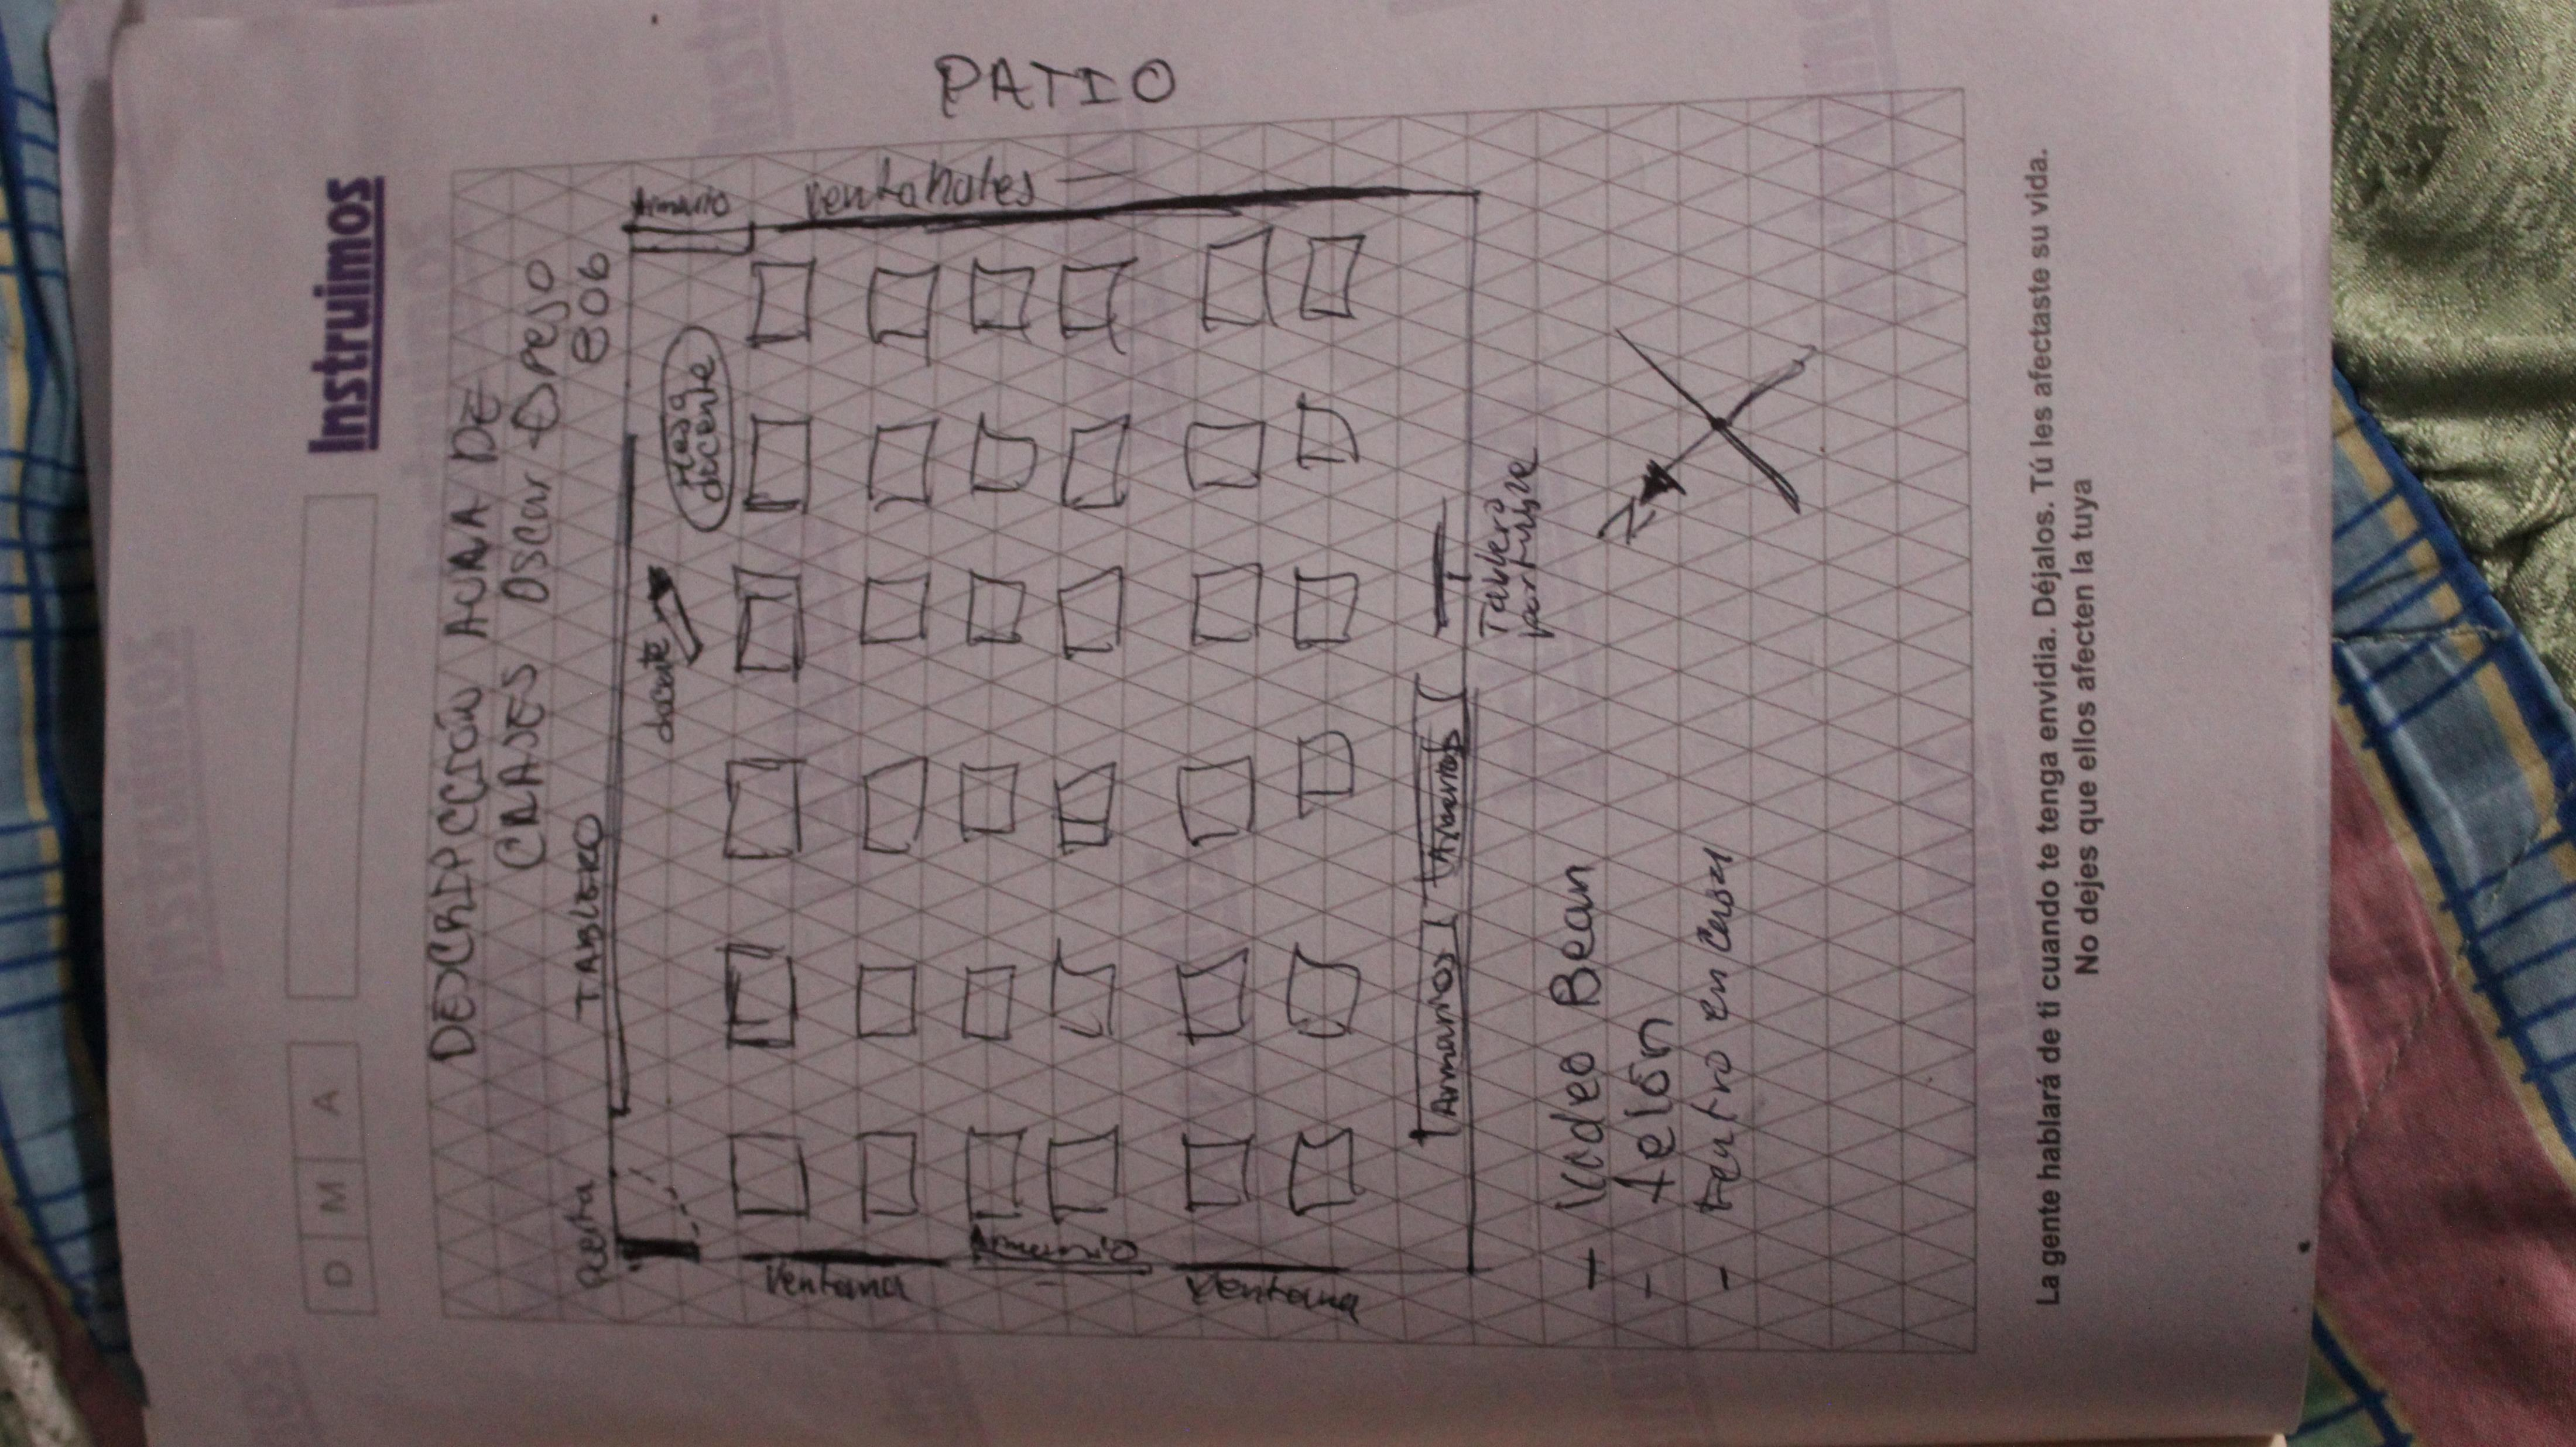 Instruimos
D M A
DESCRIPCCIÓN AULA DE
CLASES Oscar Opejo
806
puerta TABLERO
docente
Mesa
docente
Armario
ventanales
PATIO
Ventana
Armario
Ventana
Armarios
Armarios
Tablero
portatible
N
- Video Bean
- telón
- teatro en casa
La gente hablará de ti cuando te tenga envidia. Déjalos. Tú les afectaste su vida.
No dejes que ellos afecten la tuya